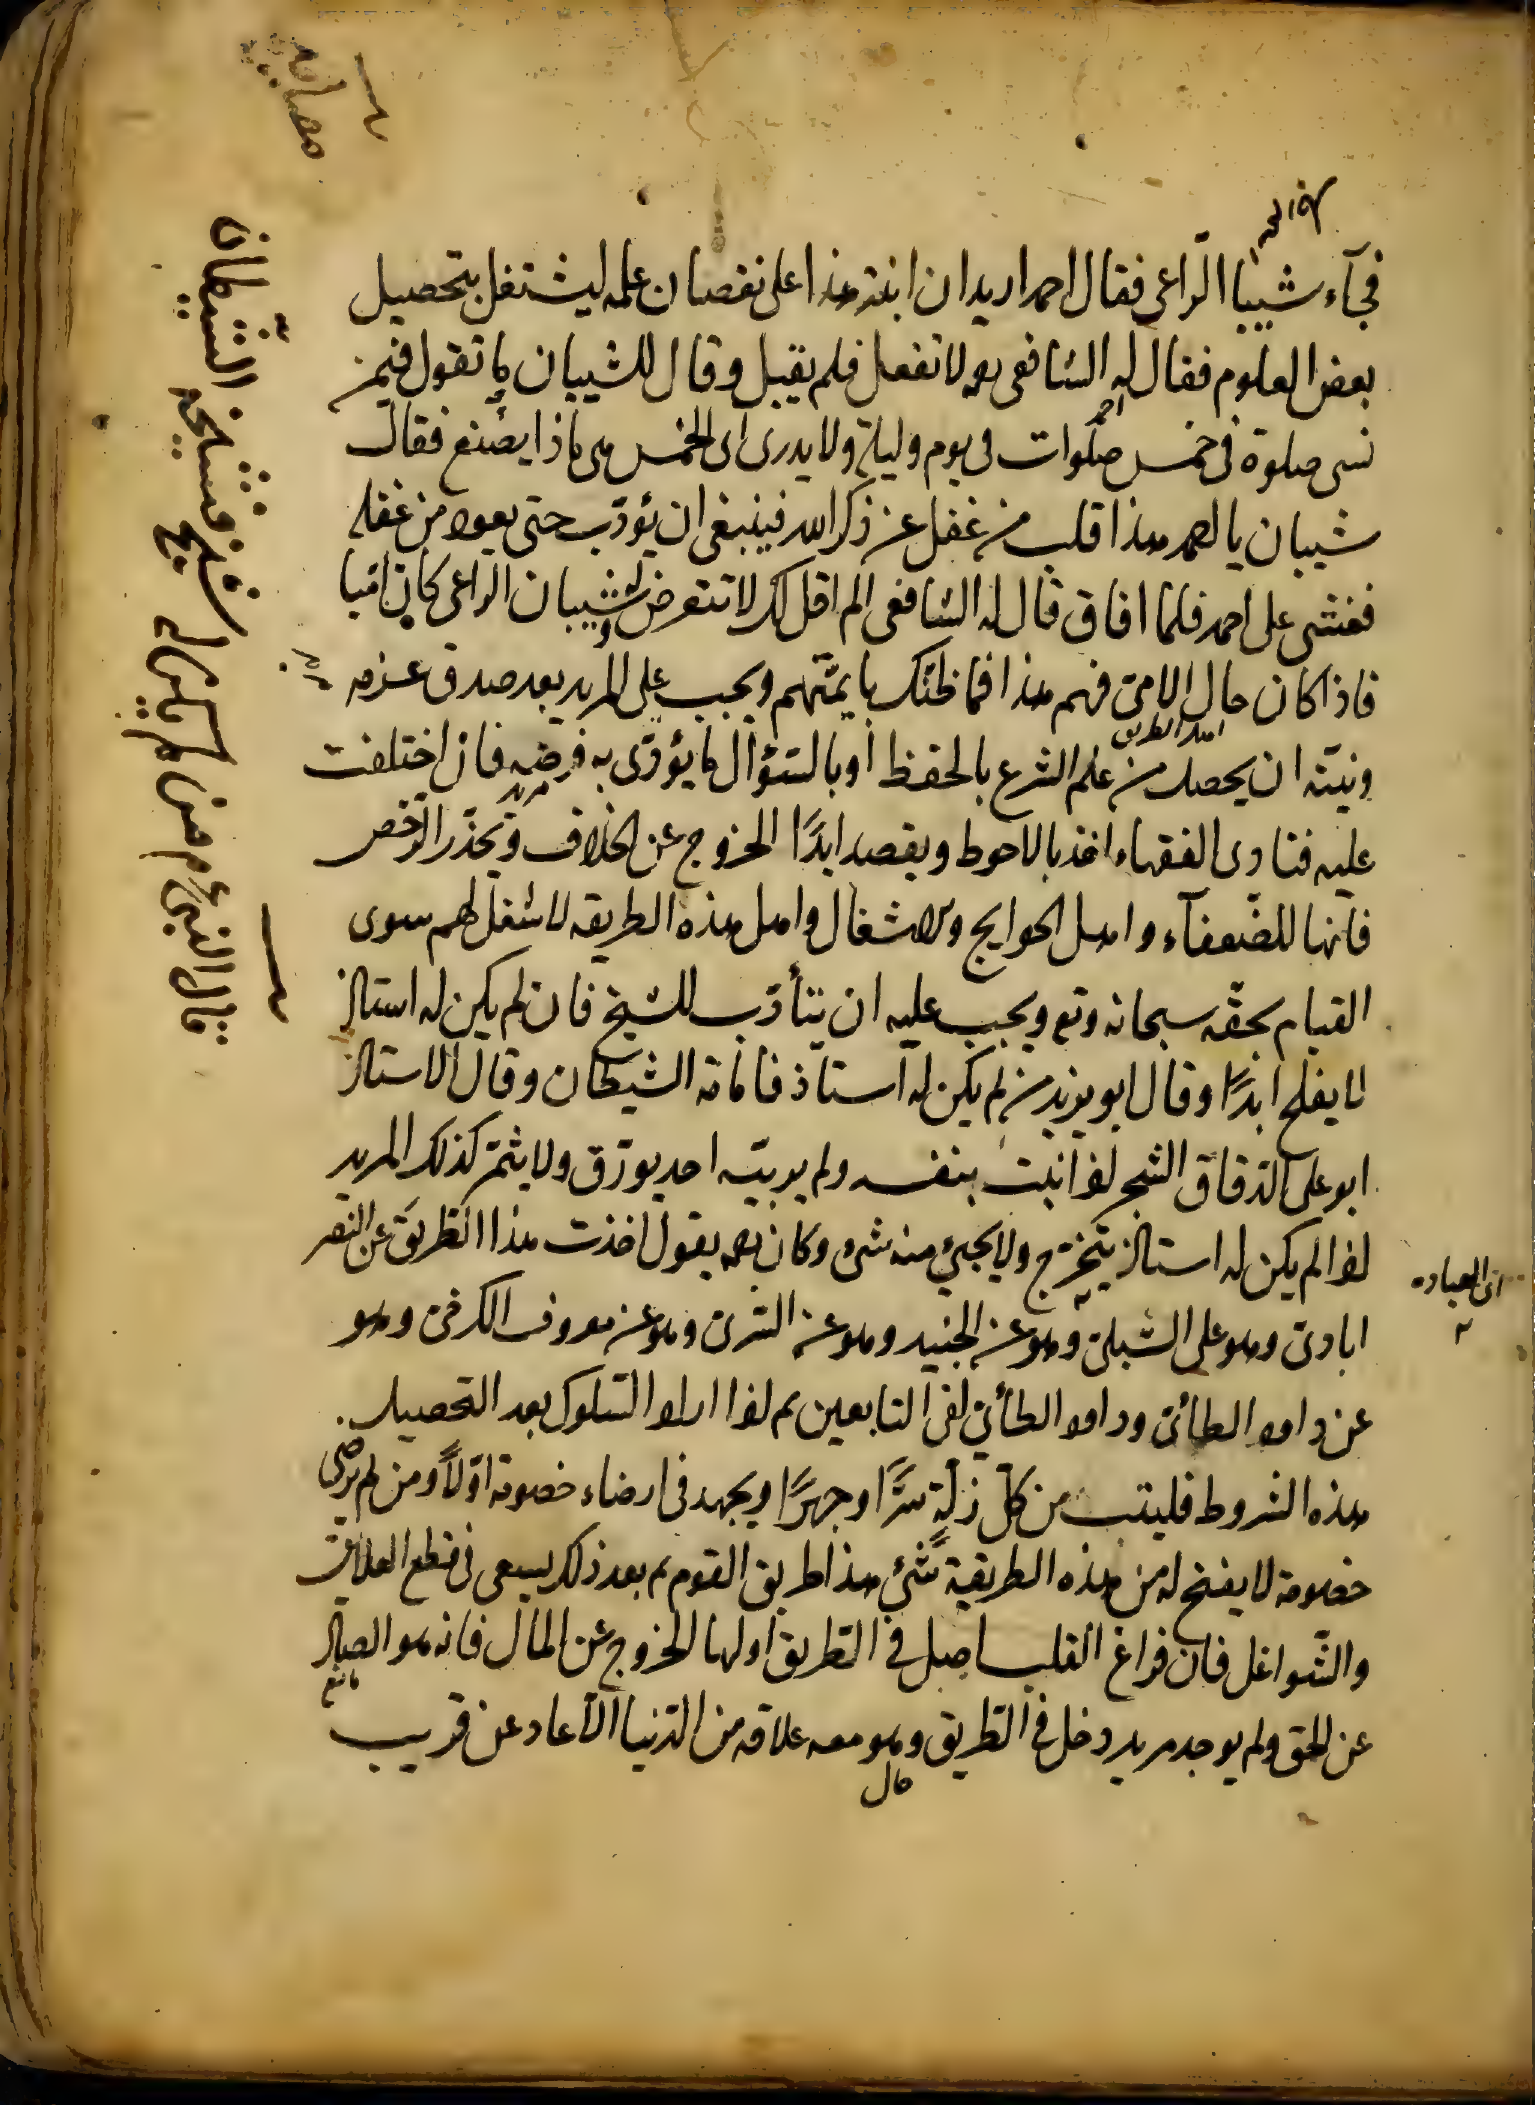 فجآء شيبا الرّاعى فقال احمد اريد ان ابنه هذا على نقصان علمه ليشتغل بتحصيل
بعض العلوم فقال له الشافعى لا تفعل فلم يقبل وقال للشيبان ما تقول فيمن
احمد
نسى صلوة فى خمس صلوات فى يوم وليلة ولا يدرى اى الخمس هى ماذا يصنع فقال
شيبان يا احمد هذا قلب من غفل عن ذكر الله فينبغى ان يؤدّب حتى يعود من غفله
فغشى على احمد فلما افاق قال له الشافعى الم اقل لك لا تتعرض له وشيبان الراعى كان اميا
فاذا كان حال الامىّ فهم هذا فما ظنّك بايمّتهم ويجب على المريد بعد صدق عزمه
اهل الطريق
ونيّته ان يحصل من علم الشرع بالحفظ او بالسّؤال ما يؤدّى به فرضه فان اختلفت
مريد
عليه فتاوى الفقهاء اخذ بالاحوط ويقصد ابدًا الخروج عن الخلاف ويحذّر الرّخص
فانّها للضّعفآء واهل الحوايج والاشغال واهل هذه الطريقه لا شغل لهم سوى
القيام بحقّه سبحانه وتع ويجب عليه ان يتأدّب للشيخ فان لم يكن له استاذ
لا يفلح ابدًا وقال ابو يزيد من لم يكن له استاذ فامامه الشيطان وقال الاستاذ
ابو على الدّقاق الشجر اذا نبت بنفسه ولم يربّيه احد يورّق ولا يثمّر كذلك المريد
اذا لم يكن له استاذ يتخرّج ولا يجئ منه شئ وكان يقول اخذت هذا الطّريق عن النصر
ابادى وهو على الشبلىّ وهو عن الجنيد وهو عن السّرىّ وهو عن معروف الكرخى وهو
عن داود الطائى وداود الطائى لقى التابعين ثم اذا اراد السّلوك بعد التحصيل
هذه الشروط فليتب من كلّ زلّة سرًّا وجهرًا ويجهد فى ارضاء خصومه اوّلًا ومن لم يرضى
خصومه لا يفتح له من هذه الطريقية شئ هذا طريق القوم ثم بعد ذلك يسعى فى قطع العلايق
والشّواغل فان فراغ القلب اصل فى الطّريق اولها الخروج عن المال فانه هو الصاد
مانع
عن الحق ولم يوجد مريد دخل فى الطّريق وهو معه علاقه من الدّنيا الّا عاد عن قريب
مال
قال النبىّ م من لم يكن له شيخ فشيخه الشّيطان